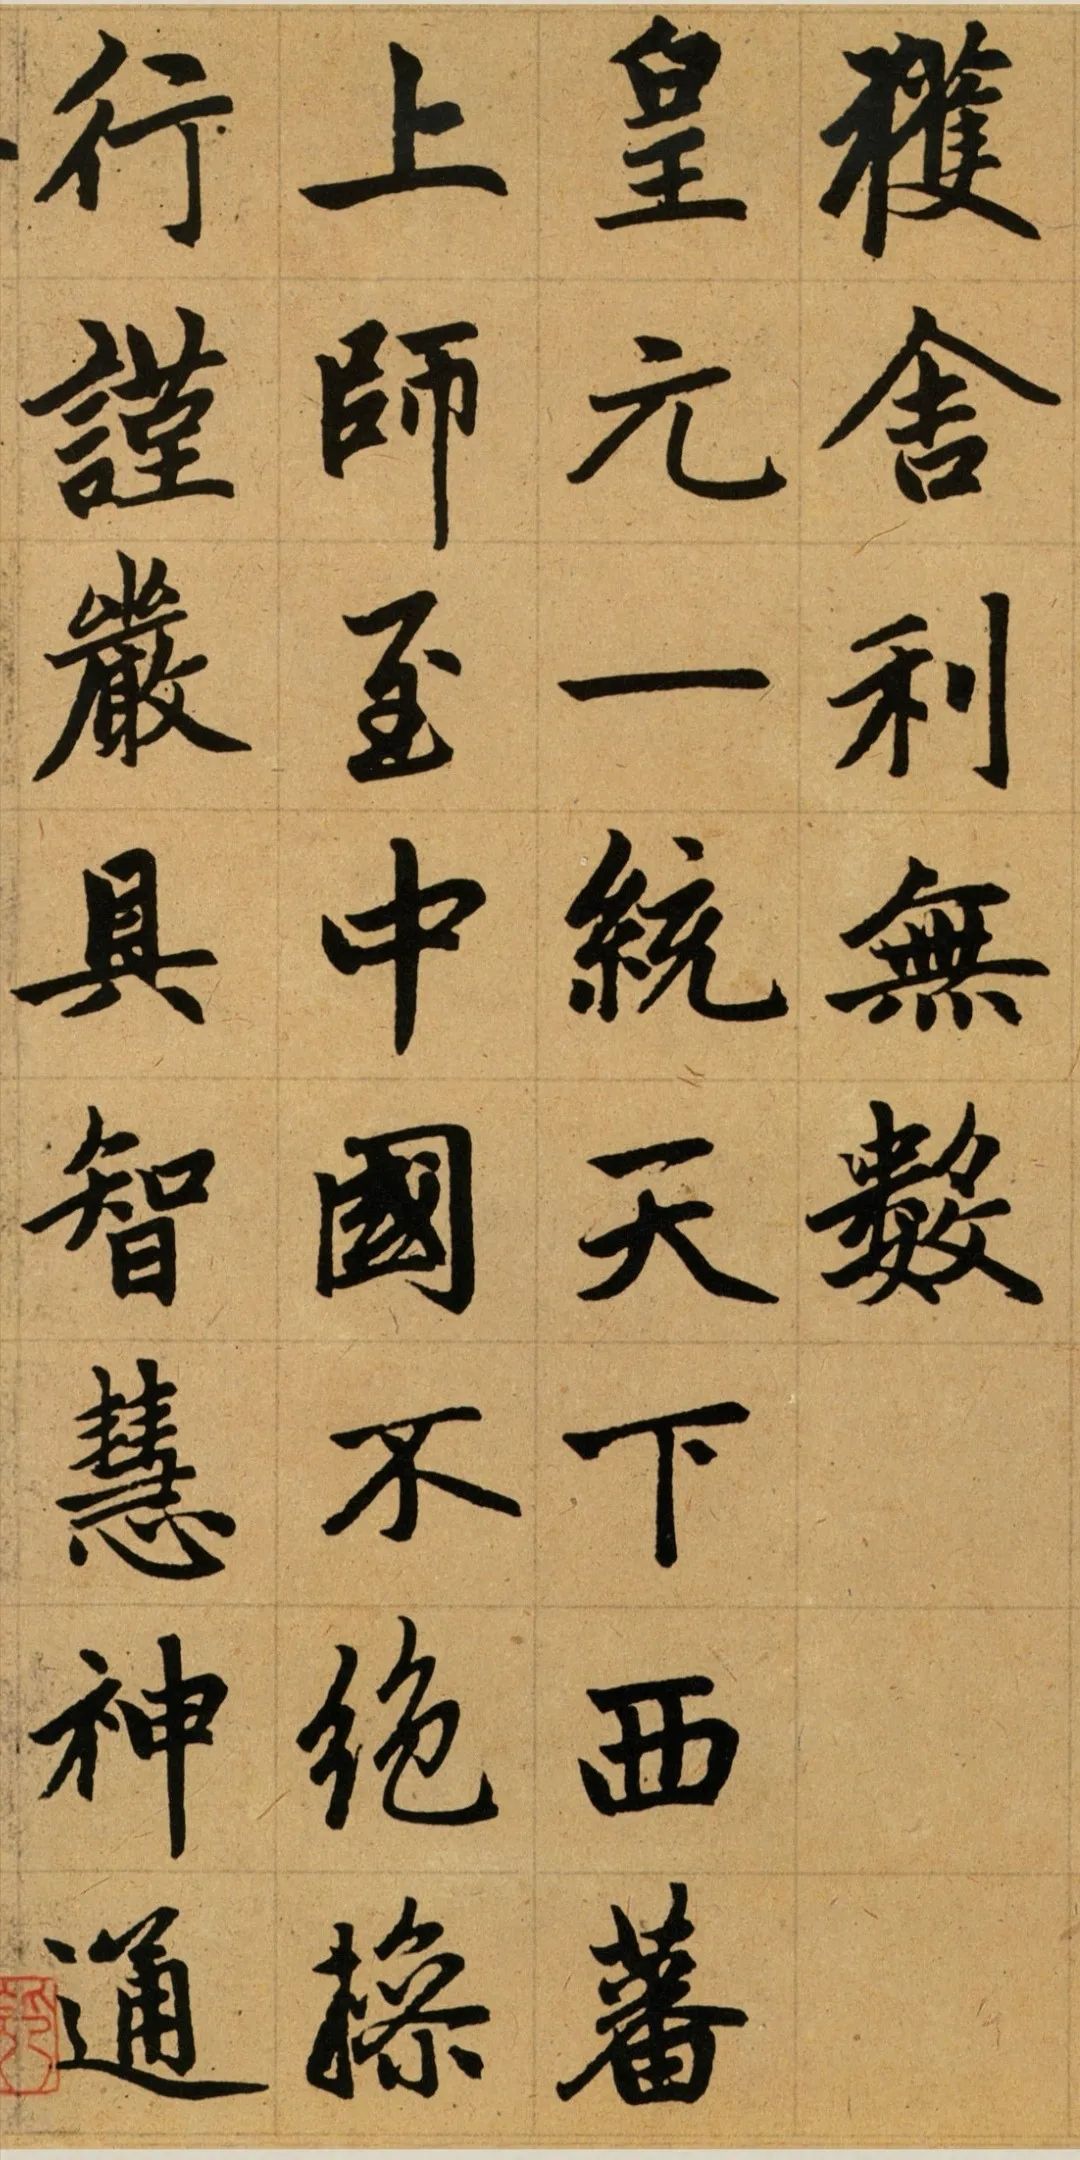 穫舍利無數
皇元一統天下西蕃
上師至中國不絕操
行謹嚴具智慧神通